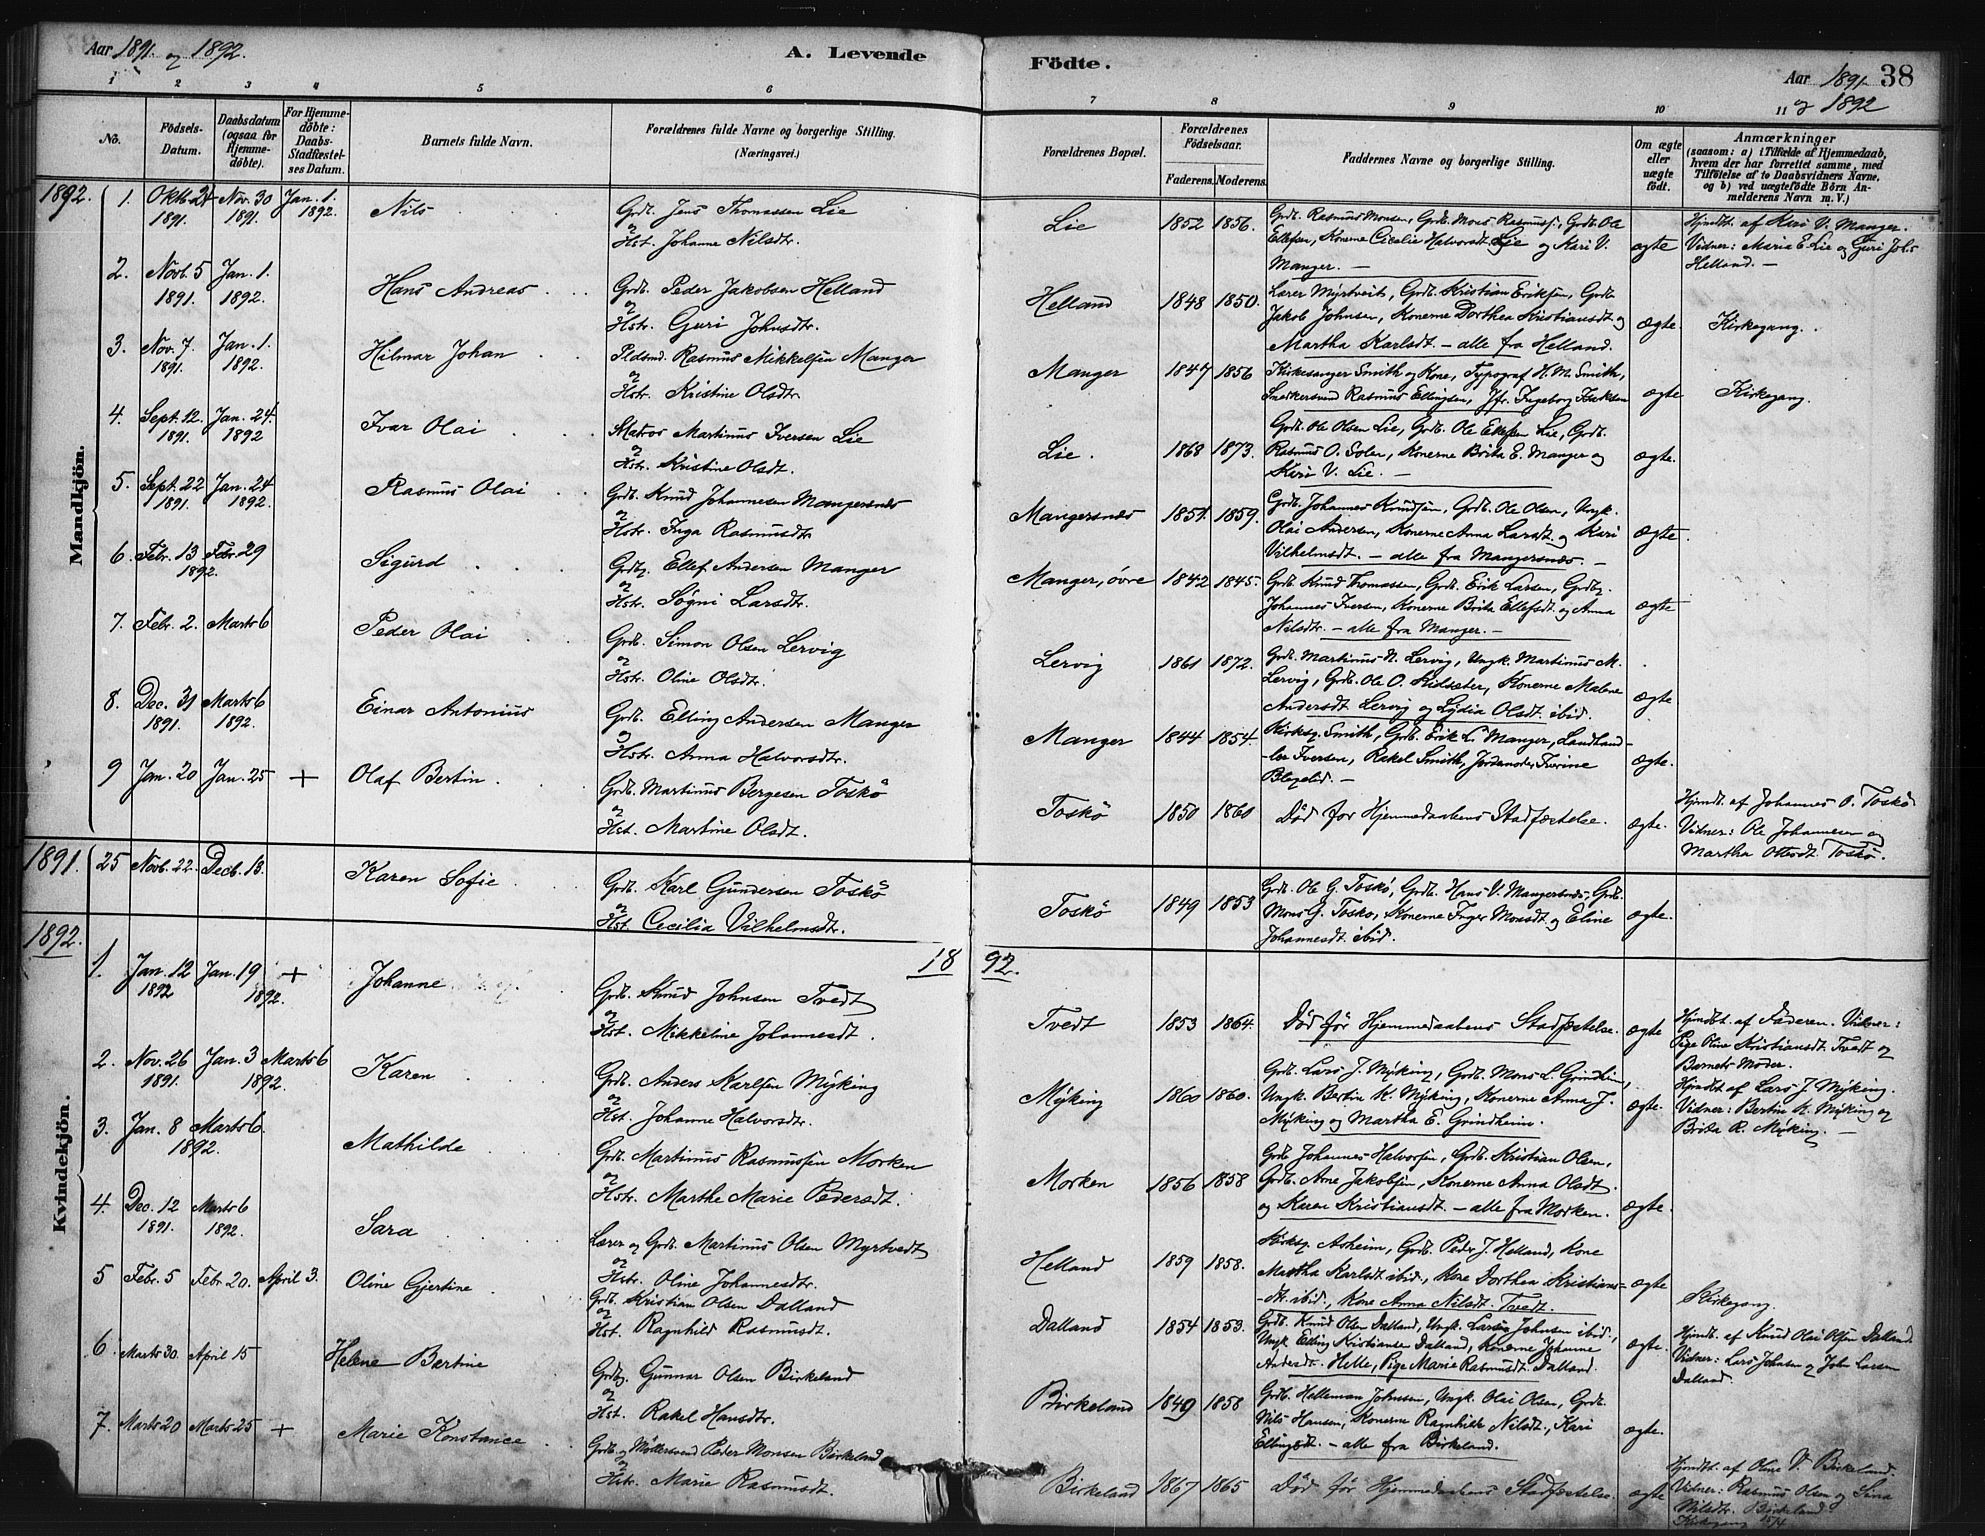 Aar 1891 og 1892.
A. Levende
Födte.
Aar 1891 og 1892
38
1 2 3 4 5 6 7 8 9 10 11
No.
Födsels-Datum.
Daabsdatum (ogsaa for Hjemme-döbte).
For Hjemme-döbte: Daabs-Stadfæstel-ses Datum.
Barnets fulde Navn.
Forældrenes fulde Navne og borgerlige Stilling. (Næringsvei.)
Forældrenes Bopæl.
Forældrenes Födselsaar.
Faderens. Moderens.
Faddernes Navne og borgerlige Stilling.
Om ægte eller uægte født.
Anmærkninger (saasom: a) i Tilfælde af Hjemmedaab, hvem der har forrettet samme, med Tilföielse af to Daabsvidners Navne, og b) ved uægtefödte Börn Anmelderens Navn m. V.)
Mandkjön.
1892. 1. Oktb. 24 1891. Nov. 30 1891. Jan. 1. 1892. Nils
Grdb. Jens Thomassen Lie
og
Hst. Johanne Nilsdtr.
Lie 1852 1856.
Grdb. Rasmus Monsen, Grdb. Mons Rasmuss., Grdb. Ole
Ellefsen, Konerne Cicelie Halvorsdt. Lie og Kari V.
Manger. —
ægte
Hjmdbt. af Kari V. Manger.
Vidner: Maria E. Lie og Guri Johs
Helland. —
2. Novb. 5 1891. Jan. 1. 1892. Hans Andreas
Grdb. Peder Jakobsen Helland
og
Hstr. Guri Johnsdtr.
Helland 1848 1850.
Lærer Myrtveit, Grdb. Kristian Eriksen, Grdb
Jakob Johnsen, Konerne Dorthea Kristiansdt og
Martha Karlsdt. — alle fra Helland.
ægte. Kirkegang.
3. Nov. 7. 1891. Jan. 1. 1892. Hilmar Johan
Pldsmd. Rasmus Mikkelsen Manger
og
Hstr. Kristine Olsdtr.
Manger 1847 1856
Kirkesanger Smith og Kone, Typograf H. M. Smith,
Snekkersvend Rasmus Ellingsen, Jfr. Ingeborg
ægte Kirkegang.
4. Sept. 12. 1891. Jan. 24. 1892 Ivar Olai
Matros Martinus Iversen Lie
og
Hstr. Kristine Olsdt.
Lie. 1868 1873.
Grdb. Ole Olsen Lie, Grdb. Ole Ellefsen Lie, Grdb.
Rasmus O. Toler, Konerne Brita E. Manger og
Kari V. Lie. —
ægte.
5. Sept. 22 1891. Jan. 24 1892. Rasmus Olai
Grdb. Knud Johannesen Mangersnæs
og
Hstr. Inga Rasmusdtr
Mangersnæs 1857. 1859.
Grdb. Johannes Knudsen, Grdb. Ole Olsen, Ungk.
Olai Andersen, Konerne Anna Larsdt og Kari
Vilhelmsdt. — alle fra Mangersnæs. —
ægte.
6. Febr. 13 Febr. 29 1892. Sigurd
Grdbg. Ellef Andersen Manger
og
Hstr. Søgni Larsdtr.
Manger, øvre 1842 1845.
Grdb. Knud Thomassen, Grdb. Erik Larsen, Grdbg.
Johannes Iversen, Konerne Brita Ellefsdt og Anna
Nilsdtr. — alle fra Manger. —
ægte
7. Febr. 2. Marts 6 Peder Olai
Grdb. Simon Olsen Lervig
og
Hstr. Oline Olsdtr.
Lervig 1861 1872.
Grdb. Martinus N. Lervig, Ungk. Martinus M.
Lervig, Grdb. Ole O. Kidsæter, Konerne Malene
Andersdt Lervig og Lydia Olsdt. ibid.
ægte
8. Dec. 31 1891. Marts 6 1892. Einar Antonius
Grdb. Elling Andersen Manger
og
Hstr. Anna Halvorsdtr.
Manger 1844 1854.
Kirkesg. Smith, Grdb. Erik L. Manger, Landhand-
ler Iversen, Rakel Smith, Jordemoder Iverine
—
ægte.
9 Jan. 20 Jan. 25 + Olaf Bertin.
Grdb. Martinus Bergesen Toskö
og
Hst. Martine Olsdt.
Toskö 1850 1860
Död før Hjemmedaabens Stadfæstelse.
ægte.
Hjmdbt. af Johannes O. Toskö
Vidner: Ole Johannesen og
Martha Ottesdt. Toskö.
Kvindekjön.
1891. 25 Novb. 22. Decb. 13. Karen Sofie
Grdb. Karl Gundersen Toskö
og
Hst. Cecilia Vilhelmsdtr.
Toskö 1849 1853
Grdb. Ole G. Toskö, Grdb. Hans V. Mangersnæs, Grdb.
Mons G. Toskö, Konerne Inger Monsdt og Eline
Johannesdt. ibid.
ægte.
1892.
1892.
1. Jan. 12 1892 Jan. 19 1892. + Johanne
Grdb. Knud Johnsen Tvedt
og
Hst. Mikkeline Johannesdt.
Tvedt 1853 1864.
Död før Hjemmedaabens Stadfæstelse.
ægte
Hjmdbt. af Faderen. Vidner:
Pige Oline Kristiansdt. Tvedt og
Barnets Moder.
2. Nov. 26 1891. Jan. 3 1892. Marts 6 Karen
Grdb. Anders Karlsen Myking
og
Hst. Johanne Halvorsdtr.
Myking 1860 1860.
Grdb. Lars J. Myking, Grdb. Mons L. Grindheim,
Ungk. Bertin K. Myking, Konerne Anna J.
Myking og Martha E. Grindheim.
ægte.
Hjmdbt. af Lars J. Myking.
Vidner: Bertin K. Myking og
Brita R. Myking. —
3. Jan. 8 Marts 6. 1892. Mathilde
Grdb. Martinus Rasmussen Morken
og
Hstr. Marthe Marie Pedersdt.
Morken 1856 1858
Grdb. Johannes Halvorsen, Grdb. Kristian Olsen,
Grdb. Arne Jakobsen, Konerne Anna Olsdt.
og Karen Kristiansdt. — alle fra Morken.
ægte.
4. Dec. 12 1891. Marts 6 1892. Sara
Lærer og Grdb. Martinus Olsen Myrtvedt
og
Hstr. Oline Johannesdtr.
Helland 1859 1858.
Kirkesg. Asheim, Grdb. Peder J. Helland, Kone
Martha Karlsdt. ibid., Kone Dorthea Kristians-
dt. ibid., Kone Anna Nilsdt. Tvedt.
ægte
Kirkegang.
5 Febr. 5 Febr. 20. April 3. Oline Gjertine.
Grdb. Kristian Olsen Dalland
og
Hst. Ragnhild Rasmusdt.
Dalland 1854 1853.
Grdb. Knud Olsen Dalland, Ungk. Lars Johnsen ibid.,
Ungk. Elling Kristiansen Dalland, Konerne Johanne
Andersdt. Helle, Pige Marie Rasmusdt. Dalland.
ægte.
Hjmdbt. af Knud Olai Olsen Dalland.
Vidner: Lars Johnsen og John Larsen
Dalland.
6. Marts 30. April 15 Helene Bertine
Grdbg. Gunnar Olsen Birkeland
og
Hst. Rakel Hansdtr.
Birkeland 1849 1858
Grdb. Helleman Johnsen, Ungk. Olai Olsen, Grdb.
Nils Hansen, Konerne Ragnhilde Nilsdt., Kari
Ellingsdt. — alle fra Birkeland.
ægte.
7. Marts 20 Marts 25 + Marie Konstance
Grdb. og Möllersvend Peder Monsen Birkeland
og
Hstr. Marie Rasmusdt.
Birkeland 1867 1865
Död før Hjemmedaabens Stadfæstelse.
ægte
Hjmdbt. af Oline V. Birkeland.
Vidner: Rasmus Olsen og Sina
Nilsdtr. Birkeland.
Kirkegang 15/4